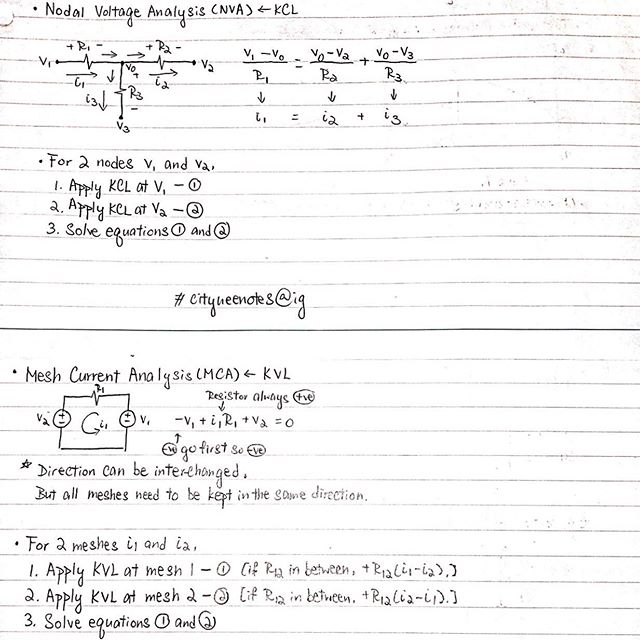 • Nodal Voltage Analysis (NVA) ← KCL
+ R₁ - → → + R₂ -
V₁ → i₁ V₀ + → i₂ V₂
i₃ ↓ R₃ -
V₃
(V₁ - V₀)/R₁ = (V₀ - V₂)/R₂ + (V₀ - V₃)/R₃
↓ ↓ ↓
i₁ = i₂ + i₃
• For 2 nodes V₁ and V₂,
1. Apply KCL at V₁ - ①
2. Apply KCL at V₂ - ②
3. Solve equations ① and ②
# cityueenotes@ig
• Mesh Current Analysis (MCA) ← KVL
R₁
V₂ + - i₁ + - V₁
Resistor always +ve
↓
-V₁ + i₁R₁ + V₂ = 0
↑
-ve go first so -ve
* Direction can be interchanged.
But all meshes need to be kept in the same direction.
• For 2 meshes i₁ and i₂,
1. Apply KVL at mesh 1 - ① [if R₁₂ in between, +R₁₂(i₁-i₂).]
2. Apply KVL at mesh 2 - ② [if R₁₂ in between, +R₁₂(i₂-i₁).]
3. Solve equations ① and ②